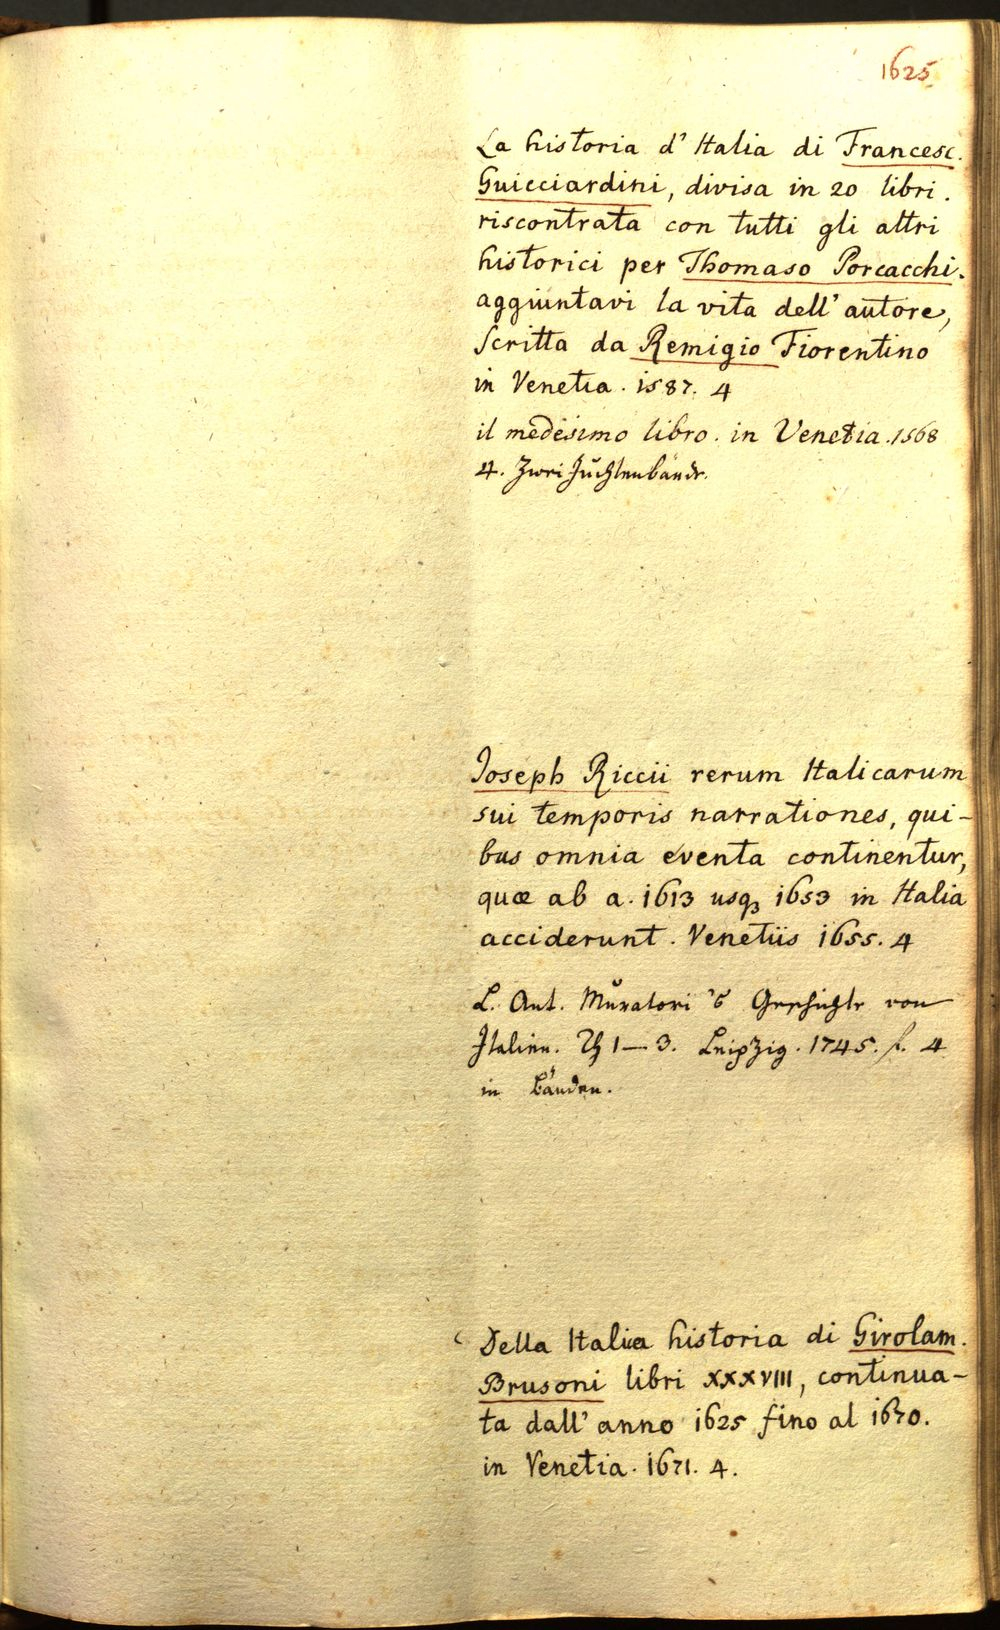 1625
La historia d' Italia di Francesc.
Guicciardini, divisa in 20 libri.
riscontrata con tutti gli altri
historici per Thomaso Porcacchi.
aggiuntavi la vita dell' autore,
scritta da Remigio Fiorentino
in Venetia. 1587. 4
il medesimo libro. in Venetia. 1568
4. Zwei Juchtenbände.
Joseph Riccii rerum Italicarum
sui temporis narrationes, qui-
bus omnia eventa continentur,
quæ ab a. 1613 usq3 1653 in Italia
acciderunt. Venetiis 1655. 4
L. Ant. Muratori's Geschichte von
Italien. Th 1–3. Leipzig. 1745. f. 4
in Bänden.
Della Italia historia di Girolam.
Brusoni libri XXXVIII, continua-
ta dall' anno 1625 fino al 1670.
in Venetia. 1671. 4.